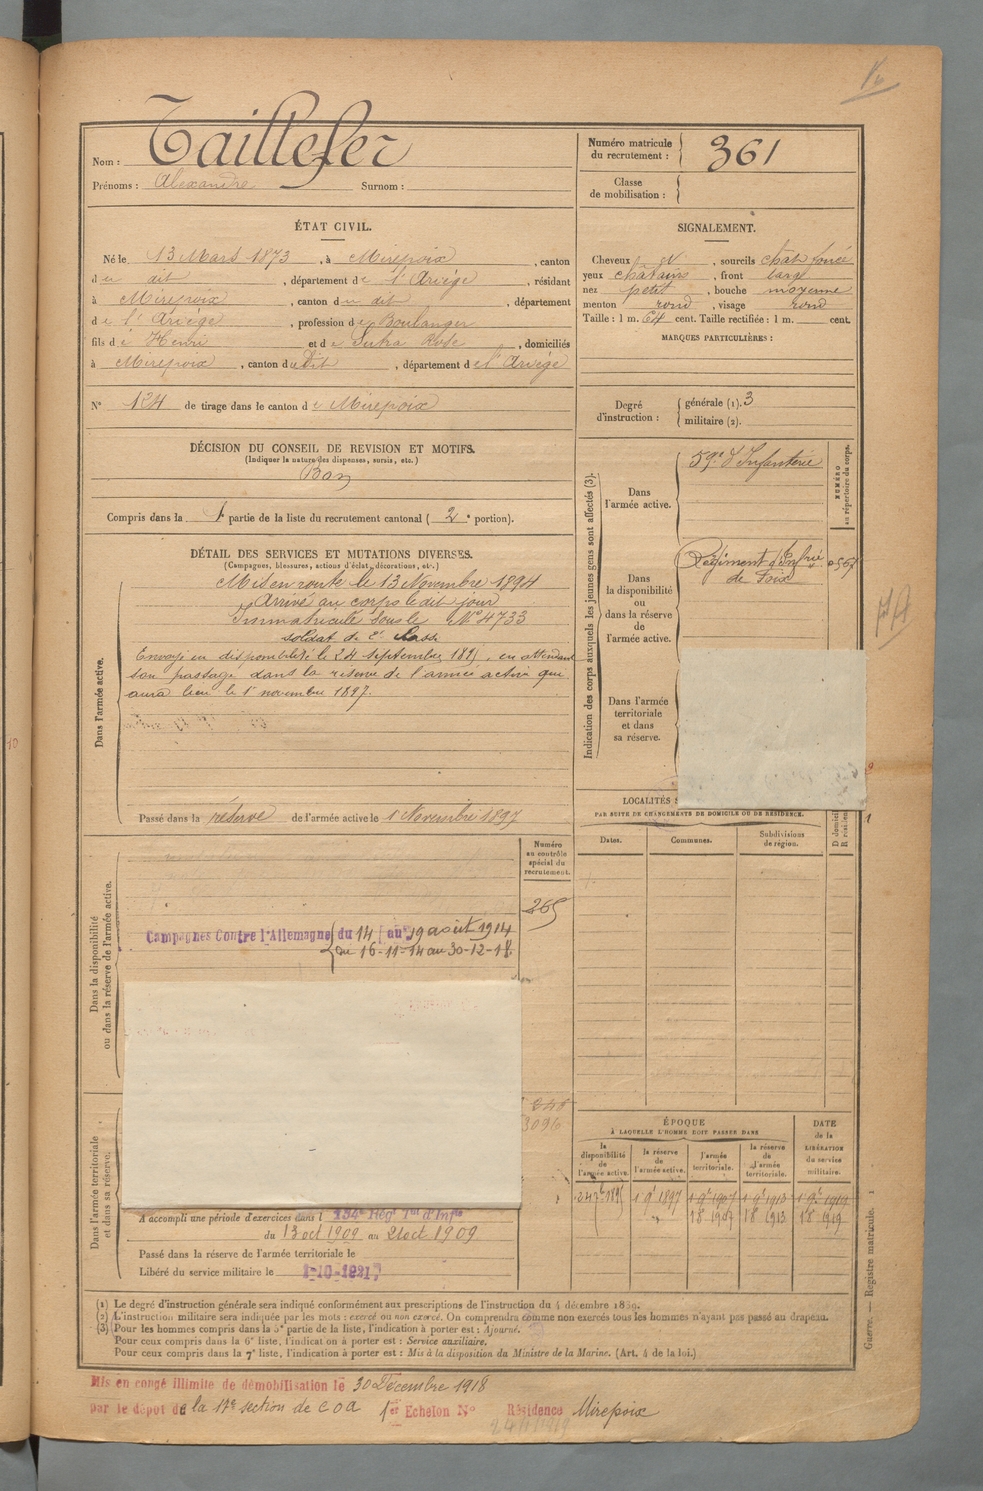 Nom : Taillefer
Prénoms : Alexandre Surnom :
Numéro matricule du recrutement : 361
Classe de mobilisation :
ÉTAT CIVIL.
Né le 13 Mars 1873, à Mirepoix, canton
du dit, département de l'Ariège, résidant
à Mirepoix, canton du dit, département
de l'Ariège, profession de Boulanger
fils de Henri et de Sutra Rose, domiciliés
à Mirepoix, canton du Dit, département de l'Ariège
N° 124 de tirage dans le canton de Mirepoix
SIGNALEMENT.
Cheveux et, sourcils chât foncé
yeux châtains, front large
nez petit, bouche moyenne
menton rond, visage rond
Taille : 1 m. 64 cent. Taille rectifiée : 1 m. cent.
MARQUES PARTICULIÈRES :
Degré d'instruction : générale (1). 3
militaire (2).
DÉCISION DU CONSEIL DE REVISION ET MOTIFS.
(Indiquer la nature des dispenses, sursis, etc.)
Bon
Compris dans la 1e partie de la liste du recrutement cantonal ( 2e portion).
DÉTAIL DES SERVICES ET MUTATIONS DIVERSES.
(Campagnes, blessures, actions d'éclat, décorations, etc.)
Dans l'armée active.
Mis en route le 13 Novembre 1894
Arrivé au corps le dit jour
Immatriculé sous le N° 4733
soldat de 2e classe
Envoyé en disponibilité le 24 septembre 1895, en attendant
son passage dans la réserve de l'armée active qui
aura lieu le 1er novembre 1897.
Passé dans la réserve de l'armée active le 1er Novembre 1897
Indication des corps auxquels les jeunes gens sont affectés (3).
NUMÉRO au répertoire du corps.
Dans l'armée active.
59e d'Infanterie
Dans la disponibilité ou dans la réserve de l'armée active.
Régiment d'Infrie
de Foix
Dans l'armée territoriale et dans sa réserve.
74
LOCALITÉS
PAR SUITE DE CHANGEMENTS DE DOMICILE OU DE RÉSIDENCE.
Dates. Communes. Subdivisions de région.
Dans la disponibilité ou dans la réserve de l'armée active.
Numéro au contrôle spécial du recrutement.
265
Campagnes Contre l'Allemagne du 14 au 19 août 1914
du 16-11-14 au 30-12-18
248
3096
ÉPOQUE
À LAQUELLE L'HOMME DOIT PASSER DANS
la disponibilité de l'armée active.
la réserve de l'armée active.
l'armée territoriale.
la réserve de l'armée territoriale.
DATE de la LIBÉRATION du service militaire.
24 7bre 1895 1 9e 1897 1 9e 1907 1 9e 1913 1 9e 1919
" 1 8 1907 1 8 1913 1 8 1919
Dans l'armée territoriale et dans sa réserve.
A accompli une période d'exercices dans l 134e Régt Tal d'Infie
du 13 oct 1909 au 21 oct 1909
Passé dans la réserve de l'armée territoriale le
Libéré du service militaire le 1-10-1921
(1) Le degré d'instruction générale sera indiqué conformément aux prescriptions de l'instruction du 4 décembre 1889.
(2) L'instruction militaire sera indiquée par les mots : exercé ou non exercé. On comprendra comme non exercés tous les hommes n'ayant pas passé au drapeau.
(3) Pour les hommes compris dans la 5e partie de la liste, l'indication à porter est : Ajourné.
Pour ceux compris dans la 6e liste, l'indication à porter est : Service auxiliaire.
Pour ceux compris dans la 7e liste, l'indication à porter est : Mis à la disposition du Ministre de la Marine. (Art. 4 de la loi.)
Guerre. — Registre matricule. 1
Mis en congé illimité de démobilisation le 30 Décembre 1918
par le dépôt de la 17e section de COA 1er Echelon N° Résidence Mirepoix